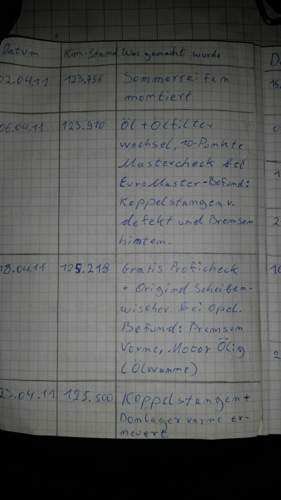 Datum Km-Stand Was gemacht wurde
02.04.11 123.756 Sommerreifen
montiert
06.04.11 123.910 Öl + Ölfilter
wechsel, 10-Punkte
Mastercheck bei
EuroMaster-Befund:
Koppelstangen v.
defekt und Bremsen
hinten.
18.04.11 125.218 Gratis Proficheck
+ Original Scheiben-
wischer bei Opel.
Befund: Bremsen
Vorne, Motor Ölig
(Ölwanne)
23.04.11 125.500 Koppelstangen +
Domlager vorne er-
neuert